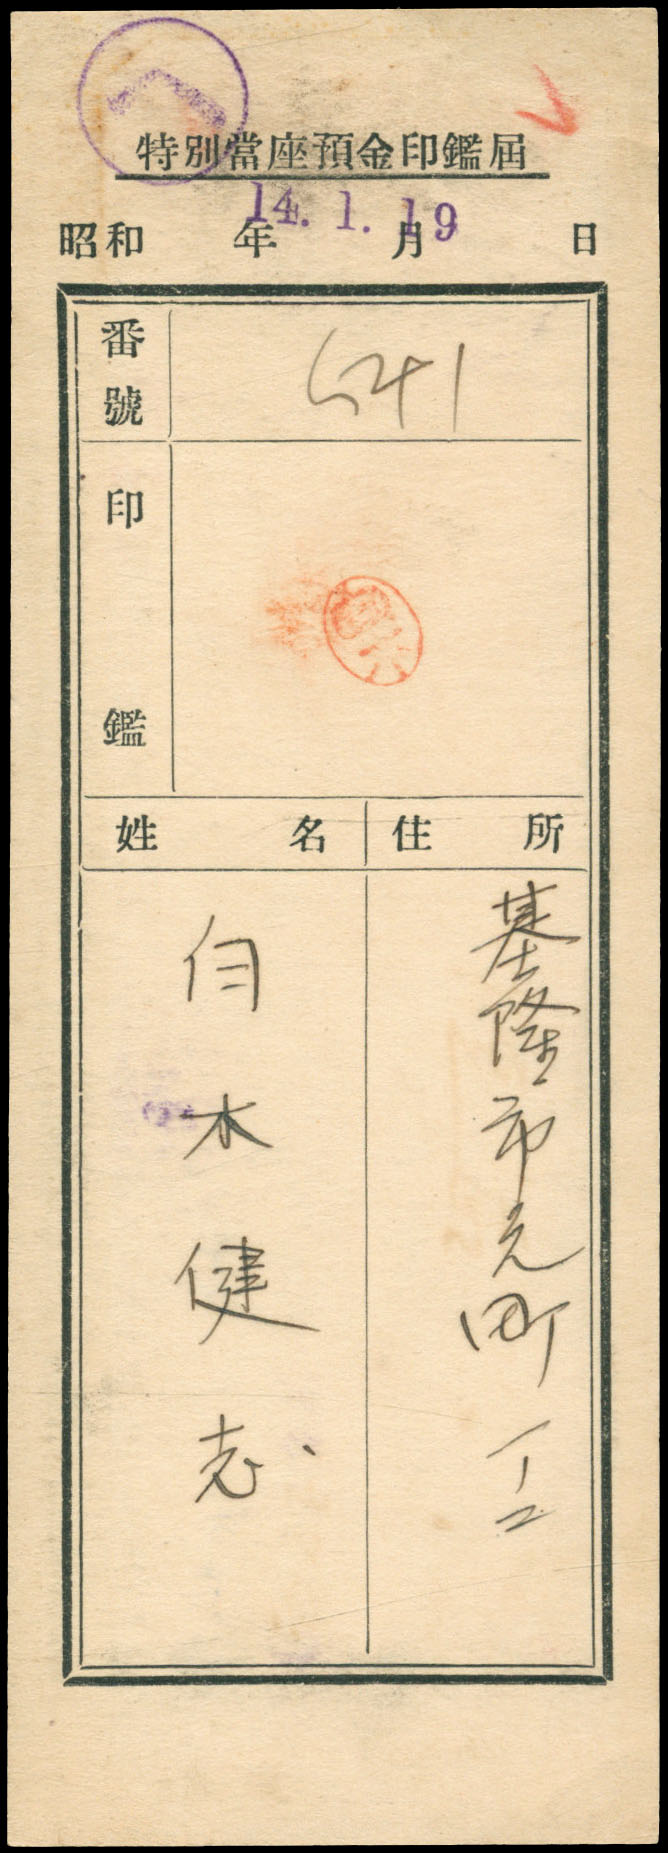 特別當座預金印鑑届
昭和 年 月 日
14. 1. 19
番號
541
印鑑
姓名
住所
白木健志
基隆市元町